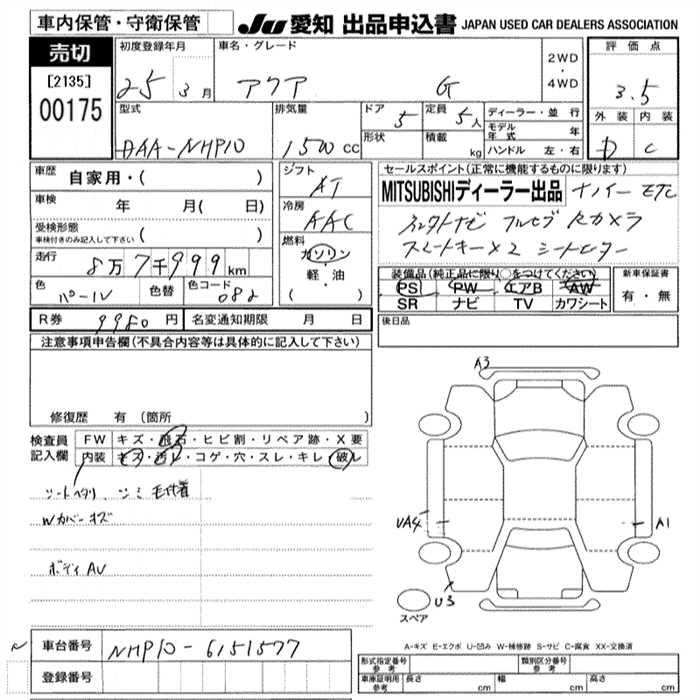 車内保管・守衛保管
JU 愛知 出品申込書 JAPAN USED CAR DEALERS ASSOCIATION
売切
[2135]
00175
初度登録年月
25 3月
車名・グレード
アクア G
2WD
・
4WD
評価点
3.5
外装 内装
D C
型式
DAA-NHP10
排気量
1500cc
ドア 5
形状
定員 5人
積載 kg
ディーラー・並行
モデル年式 年
ハンドル 左・右
車歴 自家用・( )
車検 年 月( 日)
受検形態
車検付きのみ記入して下さい ( )
走行 8万7千999km
色 パール 色替 色コード 082
シフト AT
冷房 AAC
燃料
ガソリン
軽・油
( )
セールスポイント(正常に機能するものに限ります)
MITSUBISHIディーラー出品 ナノイー ETC
フルセグ Rカメラ
スマートキー×2 シートヒーター
装備品(純正品に限り〇をつけてください)
PS PW エアB AW
SR ナビ TV カワシート
新車保証書
有・無
R券 9980円 名変通知期限 月 日
後日品
注意事項申告欄(不具合内容等は具体的に記入して下さい)
修復歴 有(箇所 )
検査員記入欄
FW キズ・飛石・ヒビ割・リペア跡・X要
内装 キズ・汚レ・コゲ・穴・スレ・キレ・破レ
シートヘタリ、シミ 毛付着
Wカバーキズ
ボディAU
A3
UA4
A1
U3
スペア
A-キズ E-エクボ U-凹み W-補修跡 S-サビ C-腐食 XX-交換済
車台番号 NHP10-6151577
登録番号
形式指定番号 参考
類別区分番号 参考
車庫証明用 参考 長さ cm 幅 cm 高さ cm